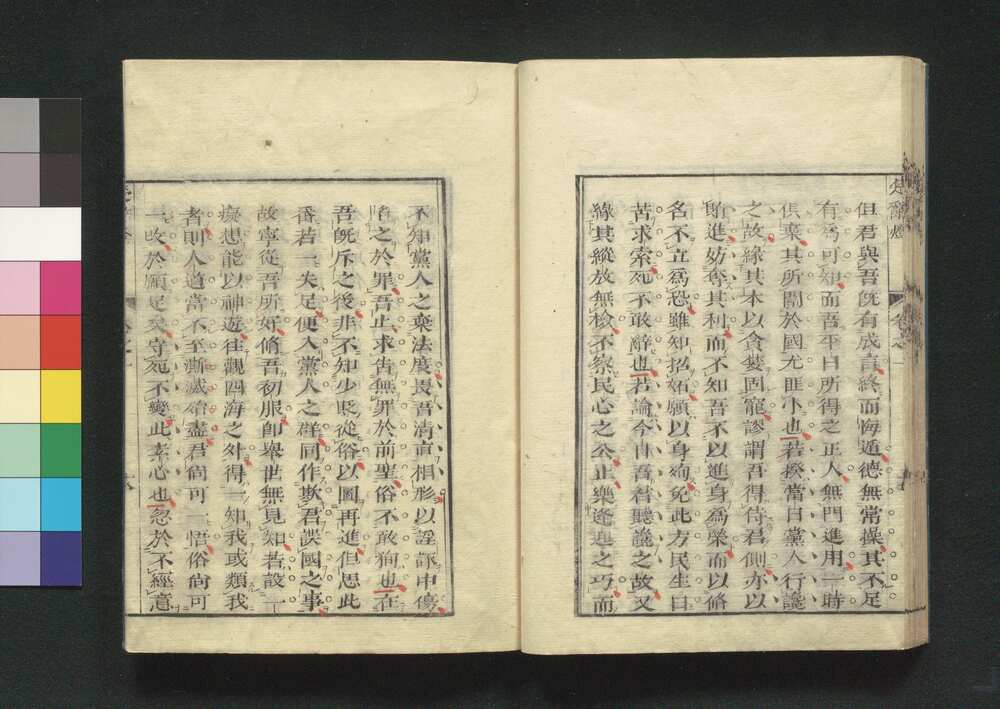 楚辭燈
但君與吾既有成言終而悔遁德無常操其不足
有爲可知而吾平日所得之正人無門進用一時
俱棄其所關於國尤匪小也若揆當日黨人行讒
之故緣其本以貪婪固寵謬謂吾得侍君側亦以
躋進妨奪其利而不知吾不以進身爲榮而以脩
名不立爲恐雖知招妬願以身殉免此方民生日
苦求索死不敢辭也若論今日吾君聽讒之故又
緣其縱放無檢不察民心之公止樂逢迎之巧而
不知黨人之棄法度畏吾清直相形以謠諑中傷
陷之於罪吾止求告無罪於前聖俗不敢狥也在
吾既斥之後非不知少貶從俗以圖再進但思此
番若一失足便入黨人之群同作欺君誤國之事
故寧從吾所好脩吾初服即舉世無見知若設一
癡想能以神遊往觀四海之外得一知我或類我
者則人道當不至漸滅殆盡君尚可一悟俗尚可
一改於願足矣守死不變此素心也忽於不經意